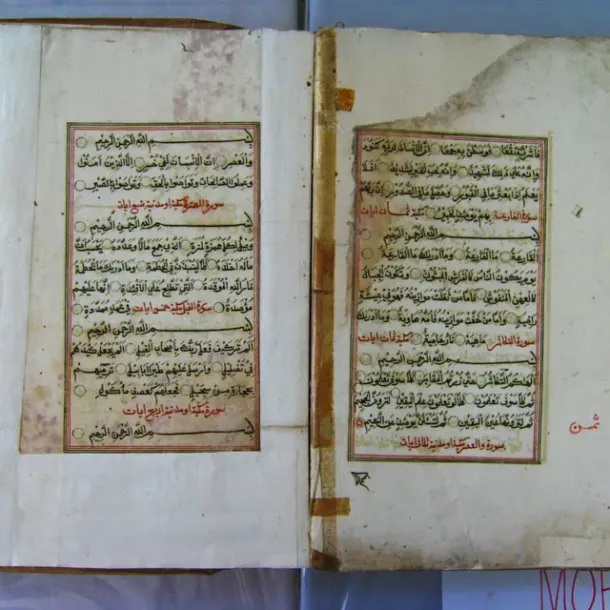 فاثرن به نقعا فوسطن به جمعا ان الانسان لربه لكنود
وانه على ذلك لشهيد وانه لحب الخير لشديد افلا
يعلم اذا بعثر ما في القبور وحصل ما في الصدور ان ربهم
سورة القارعة بهم يومئذ لخبير مكية ثمان ايات
بسم الله الرحمن الرحيم
القارعة ما القارعة وما ادريك ما القارعة
يوم يكون الناس كالفراش المبثوث وتكون الجبال
كالعهن المنفوش فاما من ثقلت موازينه فهو في عيشة
راضية واما من خفت موازينه فامه هاوية وما ادريك
سورة التكاثر ماهيه نار حامية مكية ثمان ايات
بسم الله الرحمن الرحيم
الهاكم التكاثر حتى زرتم المقابر كلا سوف تعلمون
ثم كلا سوف تعلمون كلا لو تعلمون علم اليقين لترون الجحيم
ثم لترونها عين اليقين ثم لتسئلن يومئذ عن النعيم
سورة والعصر مكية او مدنية ثلاث ايات
ثمن
بسم الله الرحمن الرحيم
والعصر ان الانسان لفي خسر الا الذين امنوا
وعملوا الصالحات وتواصوا بالحق وتواصوا بالصبر
سورة الهمزة مكية او مدنية تسع ايات
بسم الله الرحمن الرحيم
ويل لكل همزة لمزة الذي جمع مالا وعدده يحسب ان
ماله اخلده كلا لينبذن في الحطمة وما ادريك ما الحطمة
نار الله الموقدة التي تطلع على الافئدة انها عليهم
مؤصدة سورة الفيل مكية خمس ايات في عمد ممددة
بسم الله الرحمن الرحيم
الم تر كيف فعل ربك باصحاب الفيل الم يجعل كيدهم
في تضليل وارسل عليهم طيرا ابابيل ترميهم
بحجارة من سجيل فجعلهم كعصف ماكول
سورة مكية او مدنية اربع ايات
بسم الله الرحمن الرحيم